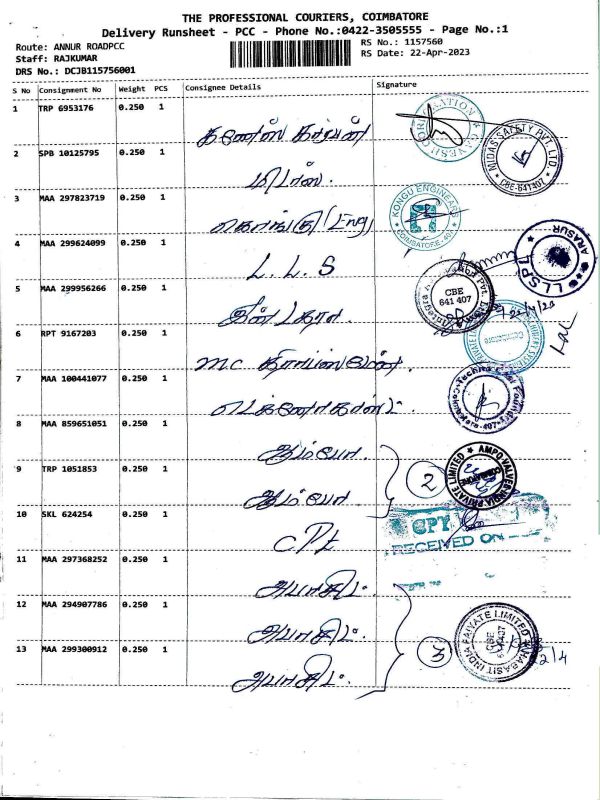 THE PROFESSIONAL COURIERS, COIMBATORE
Delivery Runsheet - PCC - Phone No.:0422-3505555 - Page No.:1
Route: ANNUR ROADPCC
RS No.: 1157560
Staff: RAJKUMAR
RS Date: 22-Apr-2023
DRS No.: DCJB115756001
S No Consignment No Weight PCS Consignee Details Signature
1 TRP 6953176 0.250 1
GANESH CORPORATION
கணேஸ்
2 SPB 10125795 0.250 1
MIDAS SAFETY PVT. LTD.
CBE-641407
மிடாஸ்.
3 MAA 297823719 0.250 1
KONGU ENGINEERS
COIMBATORE
கொங்கு Eng
4 MAA 299624099 0.250 1
LLSPL
ARASUR
L. L. S
5 MAA 299956266 0.250 1
CBE
641 407
6 RPT 9167203 0.250 1
M.C
7 MAA 100441077 0.250 1
8 MAA 859651051 0.250 1
ஆம்போ
9 TRP 1051853 0.250 1
2
AMPO VALVES INDIA PRIVATE LIMITED
ஆம்போ
10 SKL 624254 0.250 1
CPY
RECEIVED ON
11 MAA 297368252 0.250 1
அபாசிட்.
12 MAA 294907786 0.250 1
அபாசிட்.
3
HABASIT INDIA PAIYATE LIMITED
CBE
641407
13 MAA 299300912 0.250 1
அபாசிட்.